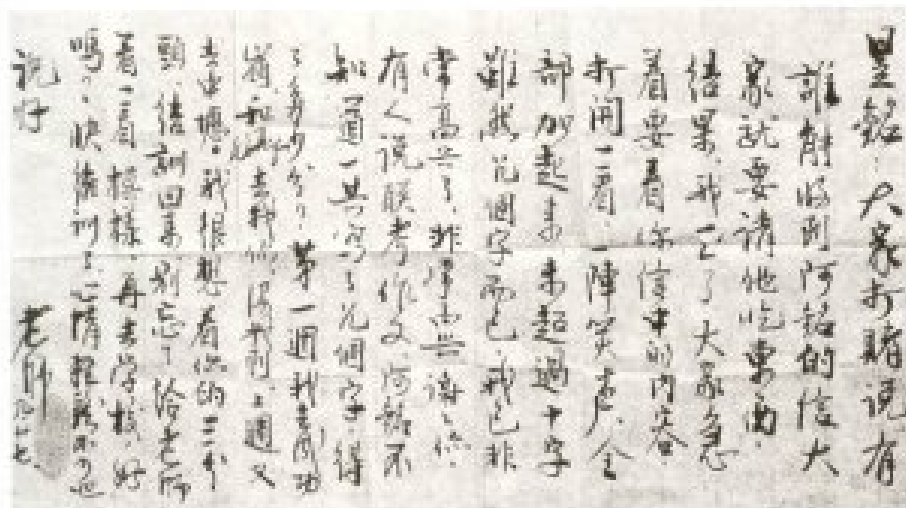 昱銘：大家打賭說有
誰能收到阿銘的信大
家就要請他吃東西，
結果，我包了大家急
着要看你信中的內容，
打開一看，一陣笑声，全
部加起來未超過十字
雖然几個字而已，我已非
常高兴了，非常高兴謝謝你。
有人說联考作文，阿銘不
知道一共寫了几個字，得
了多少分？第一週我去成功
嶺，和 去找你，沒找到，上週又
去中壢，我很想看你的三分
頭，結訓回來，別忘了給老師
看一看模樣，再去学校，好
嗎？快結訓了，心情
說好
老師